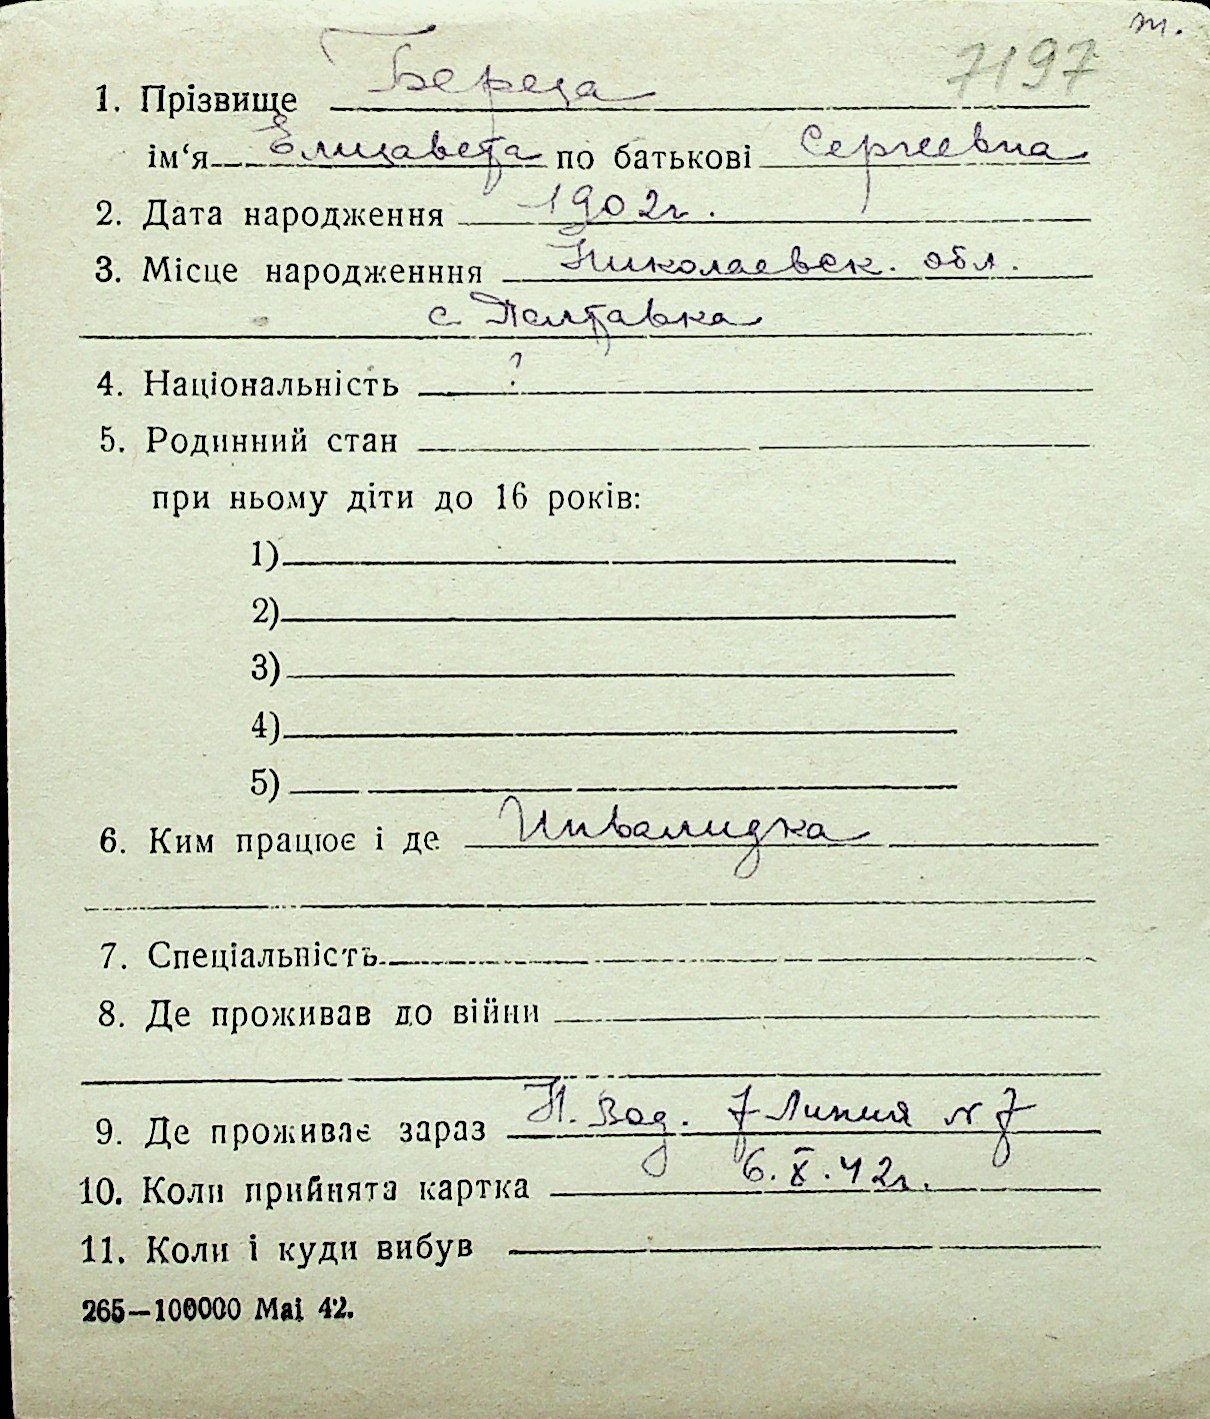 т.
7197
1. Прізвище Береза
ім‘я Елизавета по батькові Сергеевна
2. Дата народження 1902г.
3. Місце народженння Николаевск. обл.
с Полтавка
4. Національність ?
5. Родинний стан
при ньому діти до 16 років:
1)
2)
3)
4)
5)
6. Ким працює і де Инвалидка
7. Спеціальність
8. Де проживав до війни
9. Де проживає зараз Н. Вод. 7 Линия № 7
10. Коли прийнята картка 6.X.42г.
11. Коли і куди вибув
265—100000 Mai 42.